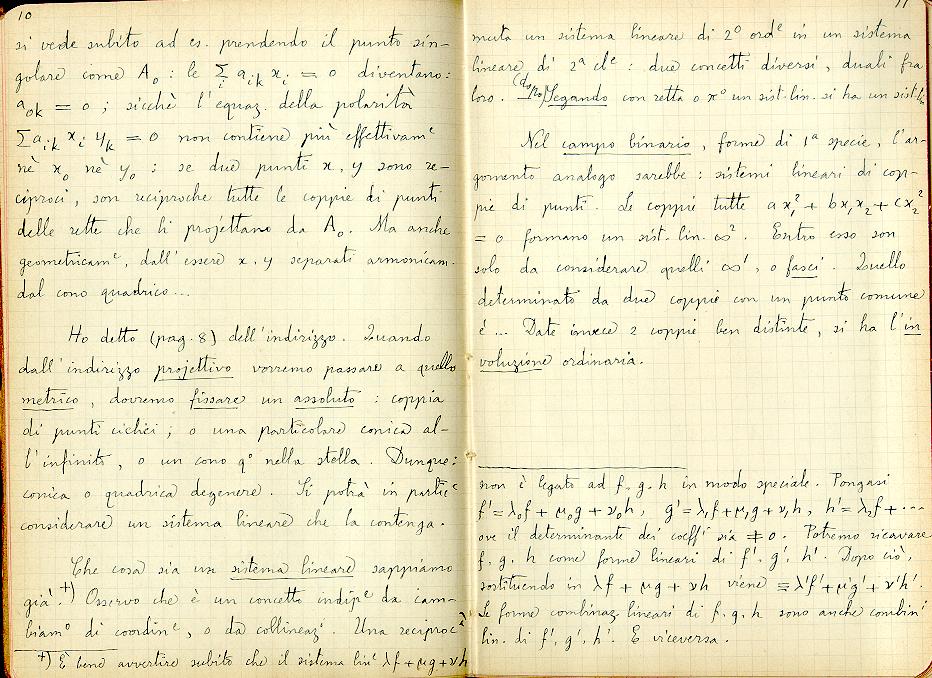 10
si vede subito ad es. prendendo il punto sin-
golare come A₀ : le Σᵢ aᵢₖ xᵢ = 0 diventano:
a₀ₖ = 0 ; sicchè l'equaz. della polarità
Σ aᵢₖ xᵢ yₖ = 0 non contiene più effettivamᵉ
nè x₀ nè y₀ : se due punti x, y sono re-
ciproci, son reciproche tutte le coppie di punti
delle rette che li projettano da A₀. Ma anche
geometricamᵉ, dall'essere x, y separati armonicam.
dal cono quadrico...
Ho detto (pag. 8) dell'indirizzo. Quando
dall'indirizzo projettivo vorremo passare a quello
metrico, dovremo fissare un assoluto : coppia
di punti ciclici ; o una particolare conica al-
l'infinito, o un cono q° nella stella. Dunque:
conica o quadrica degenere. Si potrà in particᵉ
considerare un sistema lineare che la contenga.
Che cosa sia un sistema lineare sappiamo
già.⁺) Osservo che è un concetto indipᵉ da cam-
biamⁱ di coordinᵉ, o da collineazⁱ. Una reciprocᵃ̀
+) È bene avvertire subito che il sistema linᵉ λf + μg + νh
11
muta un sistema lineare di 2° ordᵉ in un sistema
lineare di 2ᵃ clᵉ : due concetti diversi, duali fra
loro. (dopo) Segando con retta o π° un sist. lin. si ha un sist. lin.
Nel campo binario, forme di 1ᵃ specie, l'ar-
gomento analogo sarebbe : sistemi lineari di cop-
pie di punti. Le coppie tutte a x₁² + b x₁x₂ + c x₂²
= 0 formano un sist. lin. ∞². Entro esso son
solo da considerare quelli ∞¹, o fasci. Quello
determinato da due coppie con un punto comune
è ... Date invece 2 coppie ben distinte, si ha l'in
voluzione ordinaria.
non è legato ad f, g, h in modo speciale. Pongasi
f' = λ₀f + μ₀g + ν₀h, g' = λ₁f + μ₁g + ν₁h, h' = λ₂f + ...
ove il determinante dei coeffⁱ sia ≠ 0. Potremo ricavare
f, g, h come forme lineari di f', g', h'. Dopo ciò,
sostituendo in λf + μg + νh viene ≡ λ'f' + μ'g' + ν'h'.
Le forme combinaz. lineari di f, g, h sono anche combinⁱ
lin. di f', g', h'. E viceversa.